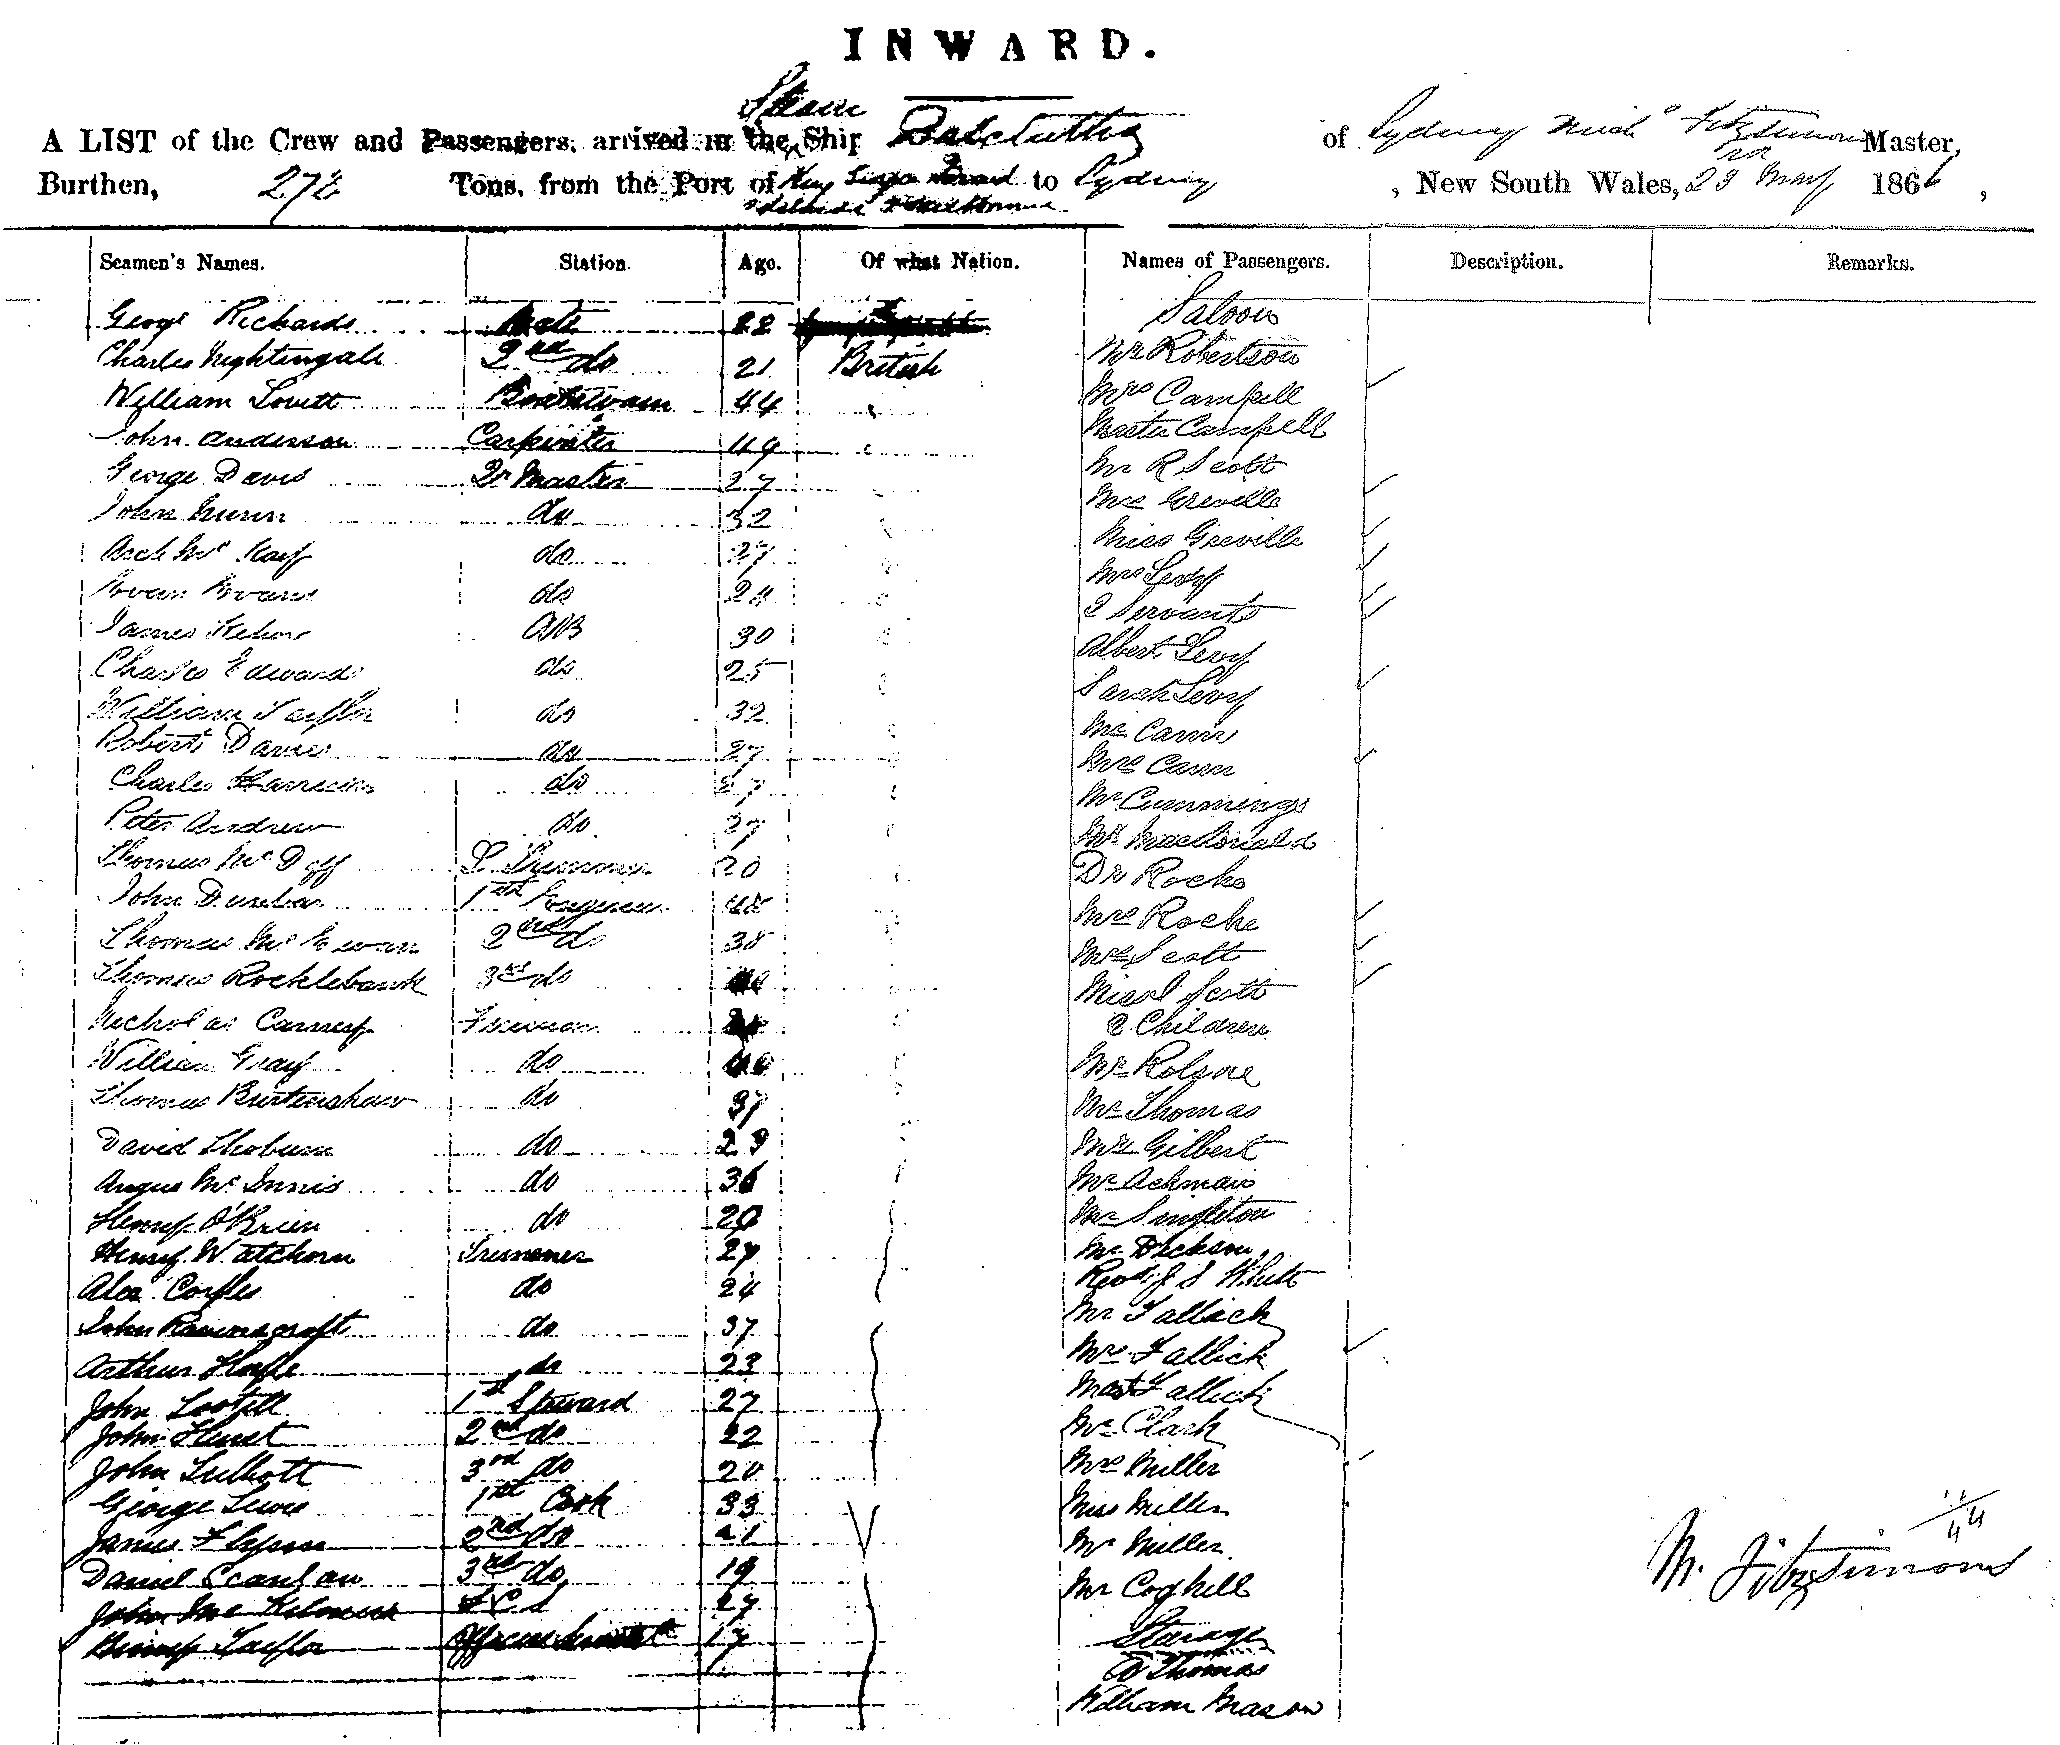 INWARD.
Steam
A LIST of the Crew and Passengers, arrived in the Ship Balclutha of Sydney Mich Fitzsimons Master,
Burthen, 272 Tons, from the Port of King Georges Sound to Sydney, New South Wales, 23rd May 1866,
Adelaide & Melbourne
Seamen's Names. Station. Age. Of what Nation. Names of Passengers. Description. Remarks.
George Richards Mate 22 Saloon
Charles Nightingale 2nd do 21 British Mr Robertson
William Lovett Boatswain 44 Mrs Campell
John Anderson Carpenter 49 Master Campell
George Davis Qr Master 27 Mr R Scott
John do 32 Mrs Greville
Arch Mc Kay do 27 Miss Greville
Evan Evans do 24 Mrs Levy
James Kehoe AB 30 2 Servants
Charles Edwards do 25 Albert Levy
William Taylor do 32 Sarah Levy
Robert Davies do 27 Mr Cann
Charles Harrison do 27 Mrs Cann
Peter Andrew do 27 Mr Cummings
Thomas Mc Duff 20 Mr MacDonald
John Dunbar 1st Engineer 48 Dr Roche
Thomas Mc Ewan 2nd do 38 Mrs Roche
Thomas Rocklebank 3rd do Mrs Scott
Nicholas Carney Fireman Miss Scott
William Gray do 40 2 Children
Thomas Burtenshaw do 37 Mr
David Thoburn do 29 Mr Thomas
Angus Mc Innis do 36 Mrs Gilbert
Henry O'Brien do 29 Mr Ackman
Henry Watchorn Trimmer 27 Mr Singleton
Alex Coyles do 24 Mr Dickson
John Ravenscroft do 37 Revd J S White
Arthur Hoyle do 23 Mr Fallick
John 1st Steward 27 Mrs Fallick
John Hurst 2nd do 22 Mast Fallick
John 3rd do 20 Mr Clark
George Lewis 1st Cook 33 Mrs Miller
James Flynn 2nd do 21 Miss Miller
Daniel Scanlan 3rd do 19 Mr Miller
John Mc 27 Mr Coghill
Henry Taylor Officers Servant 17 Steerage
A Thomas
William Mason
M. Fitzsimons